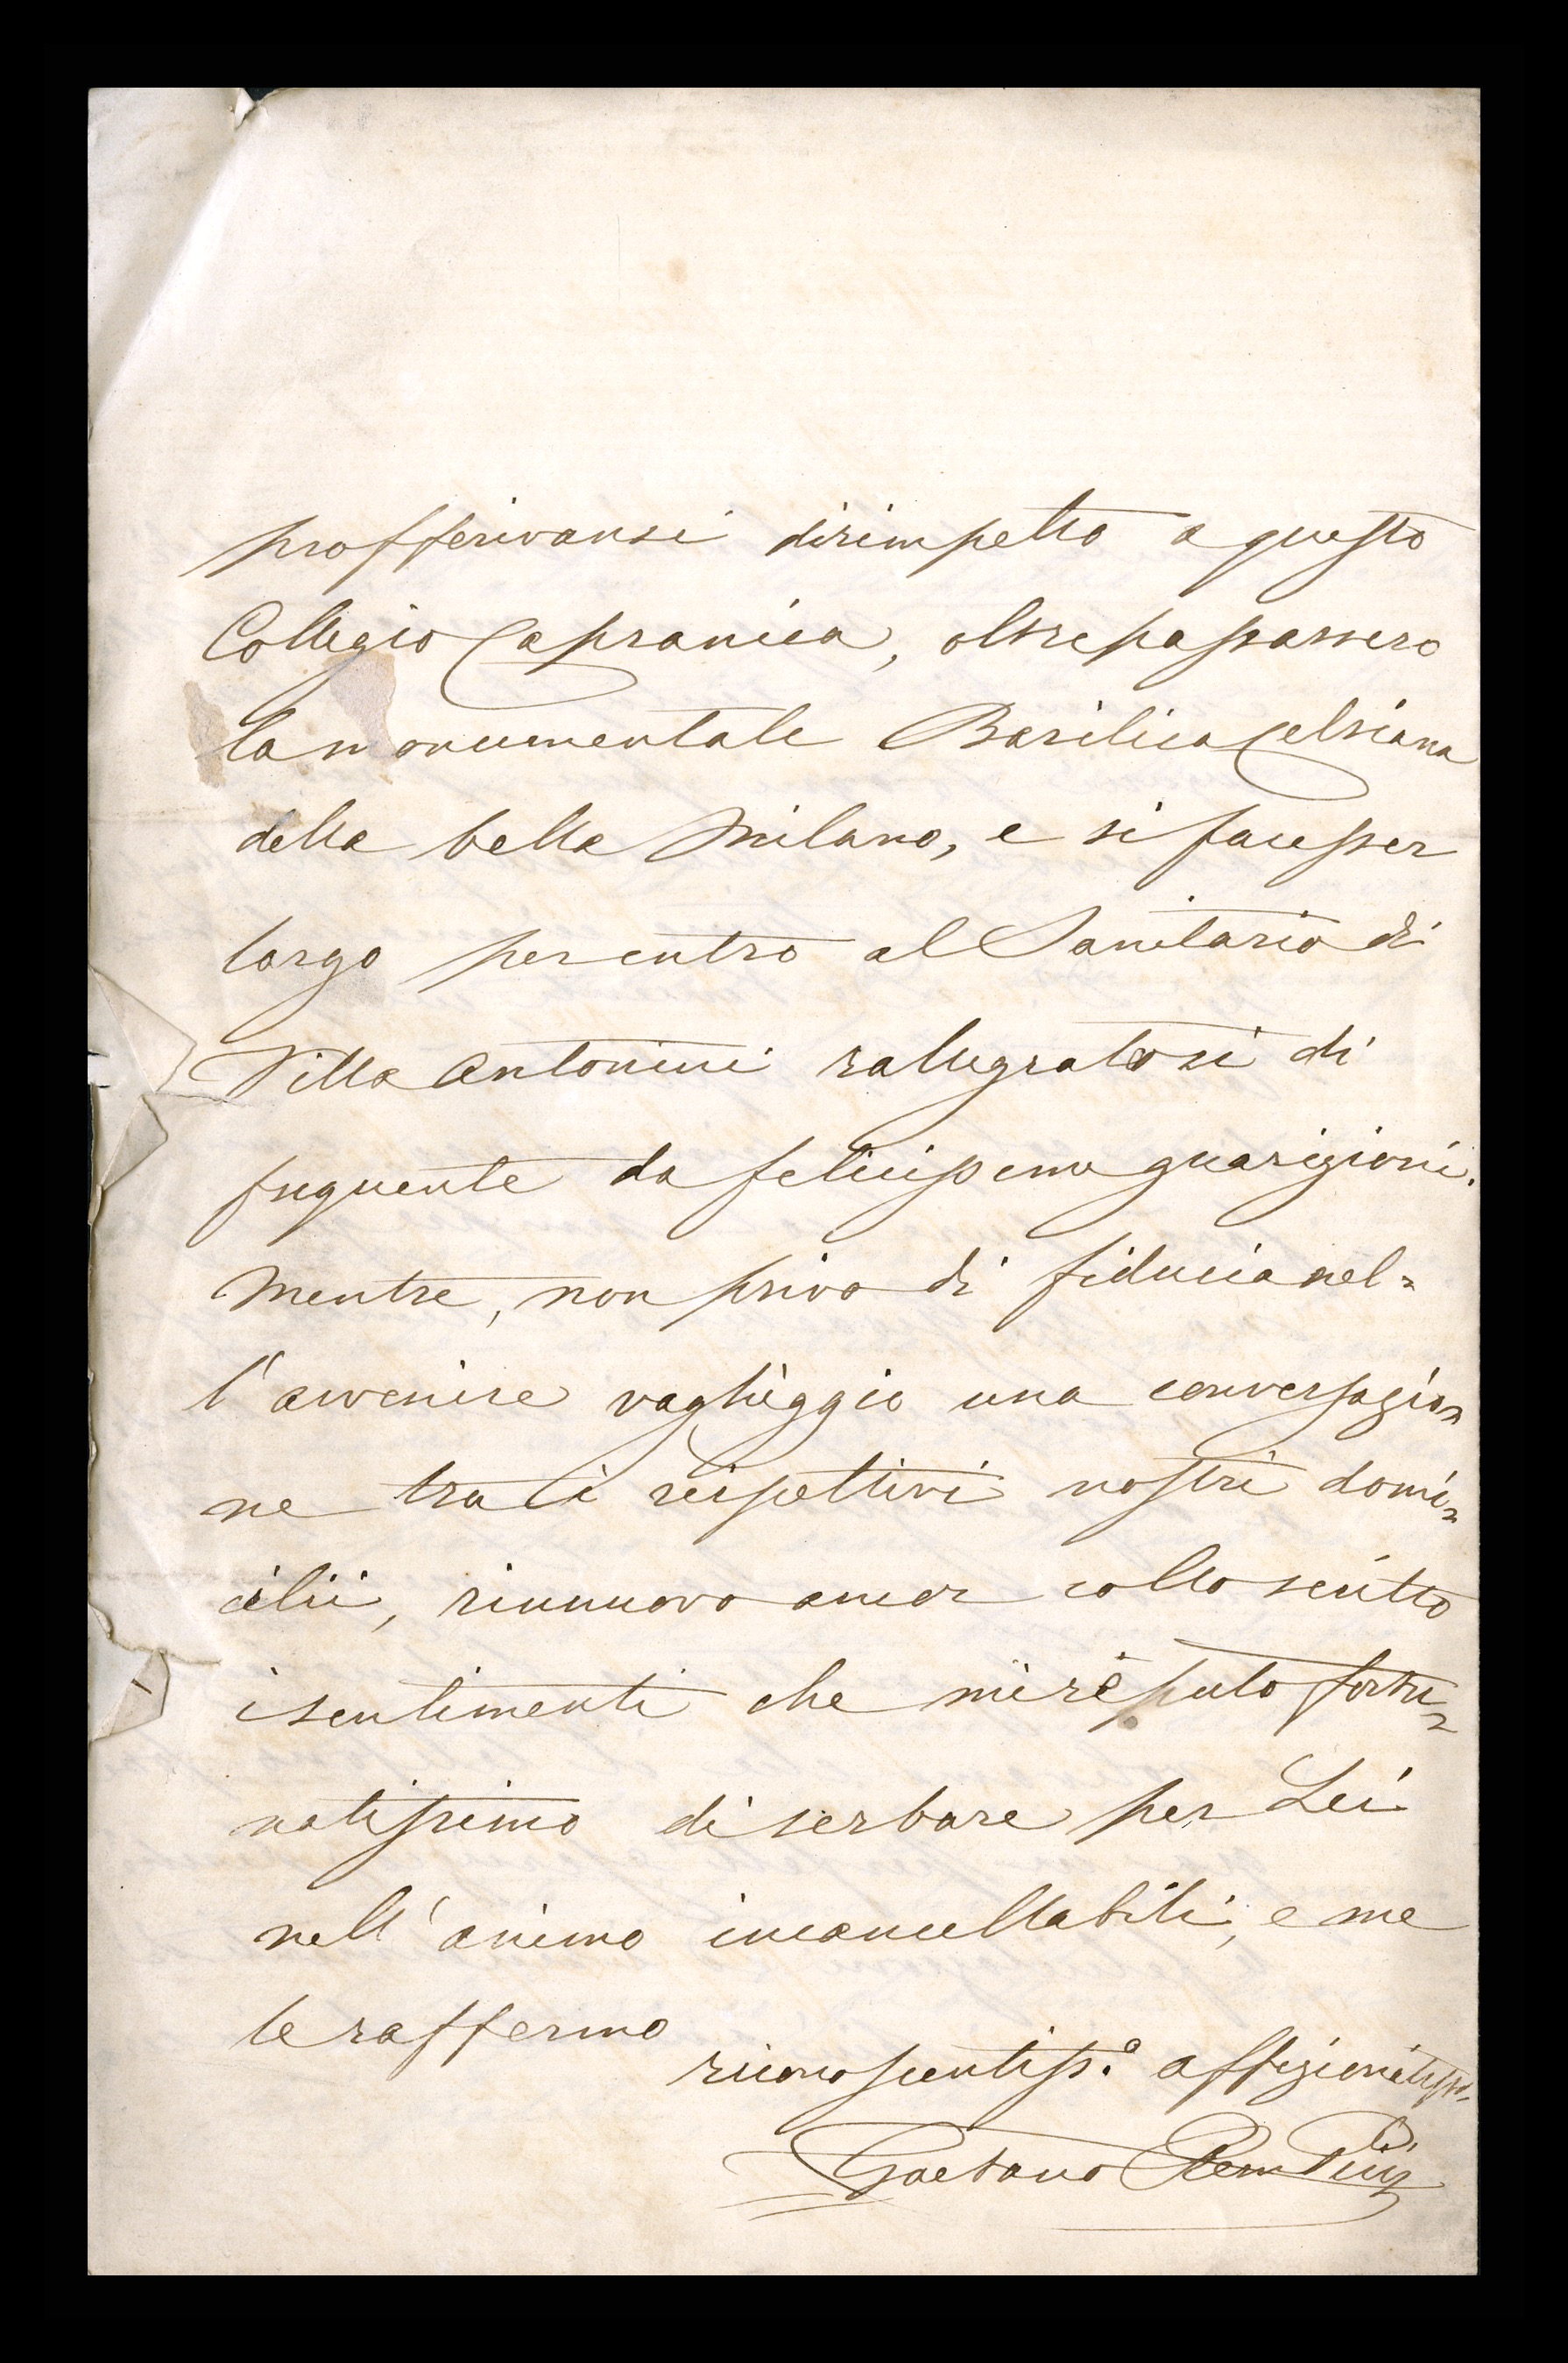 profferivansi dirimpetto a questo
Collegio Capranica, oltrepassassero
la monumentale Basilica Celsiana
della bella Milano, e si facesser
largo per entro al Sanitario di
Villa Antonini rallegratosi di
frequente da felicissime guarigioni.
Mentre, non privo di fiducia nel=
l'avvenire vagheggio una conversazio=
ne tra li rispettivi nostri domi=
cilii, rinnuovo ancor collo scritto
i sentimenti che mi reputo fortu=
natissimo di serbare per Lei
nell'animo incancellabili, e me
le raffermo
riconoscentiss.o affezionatiss.
Gaetano